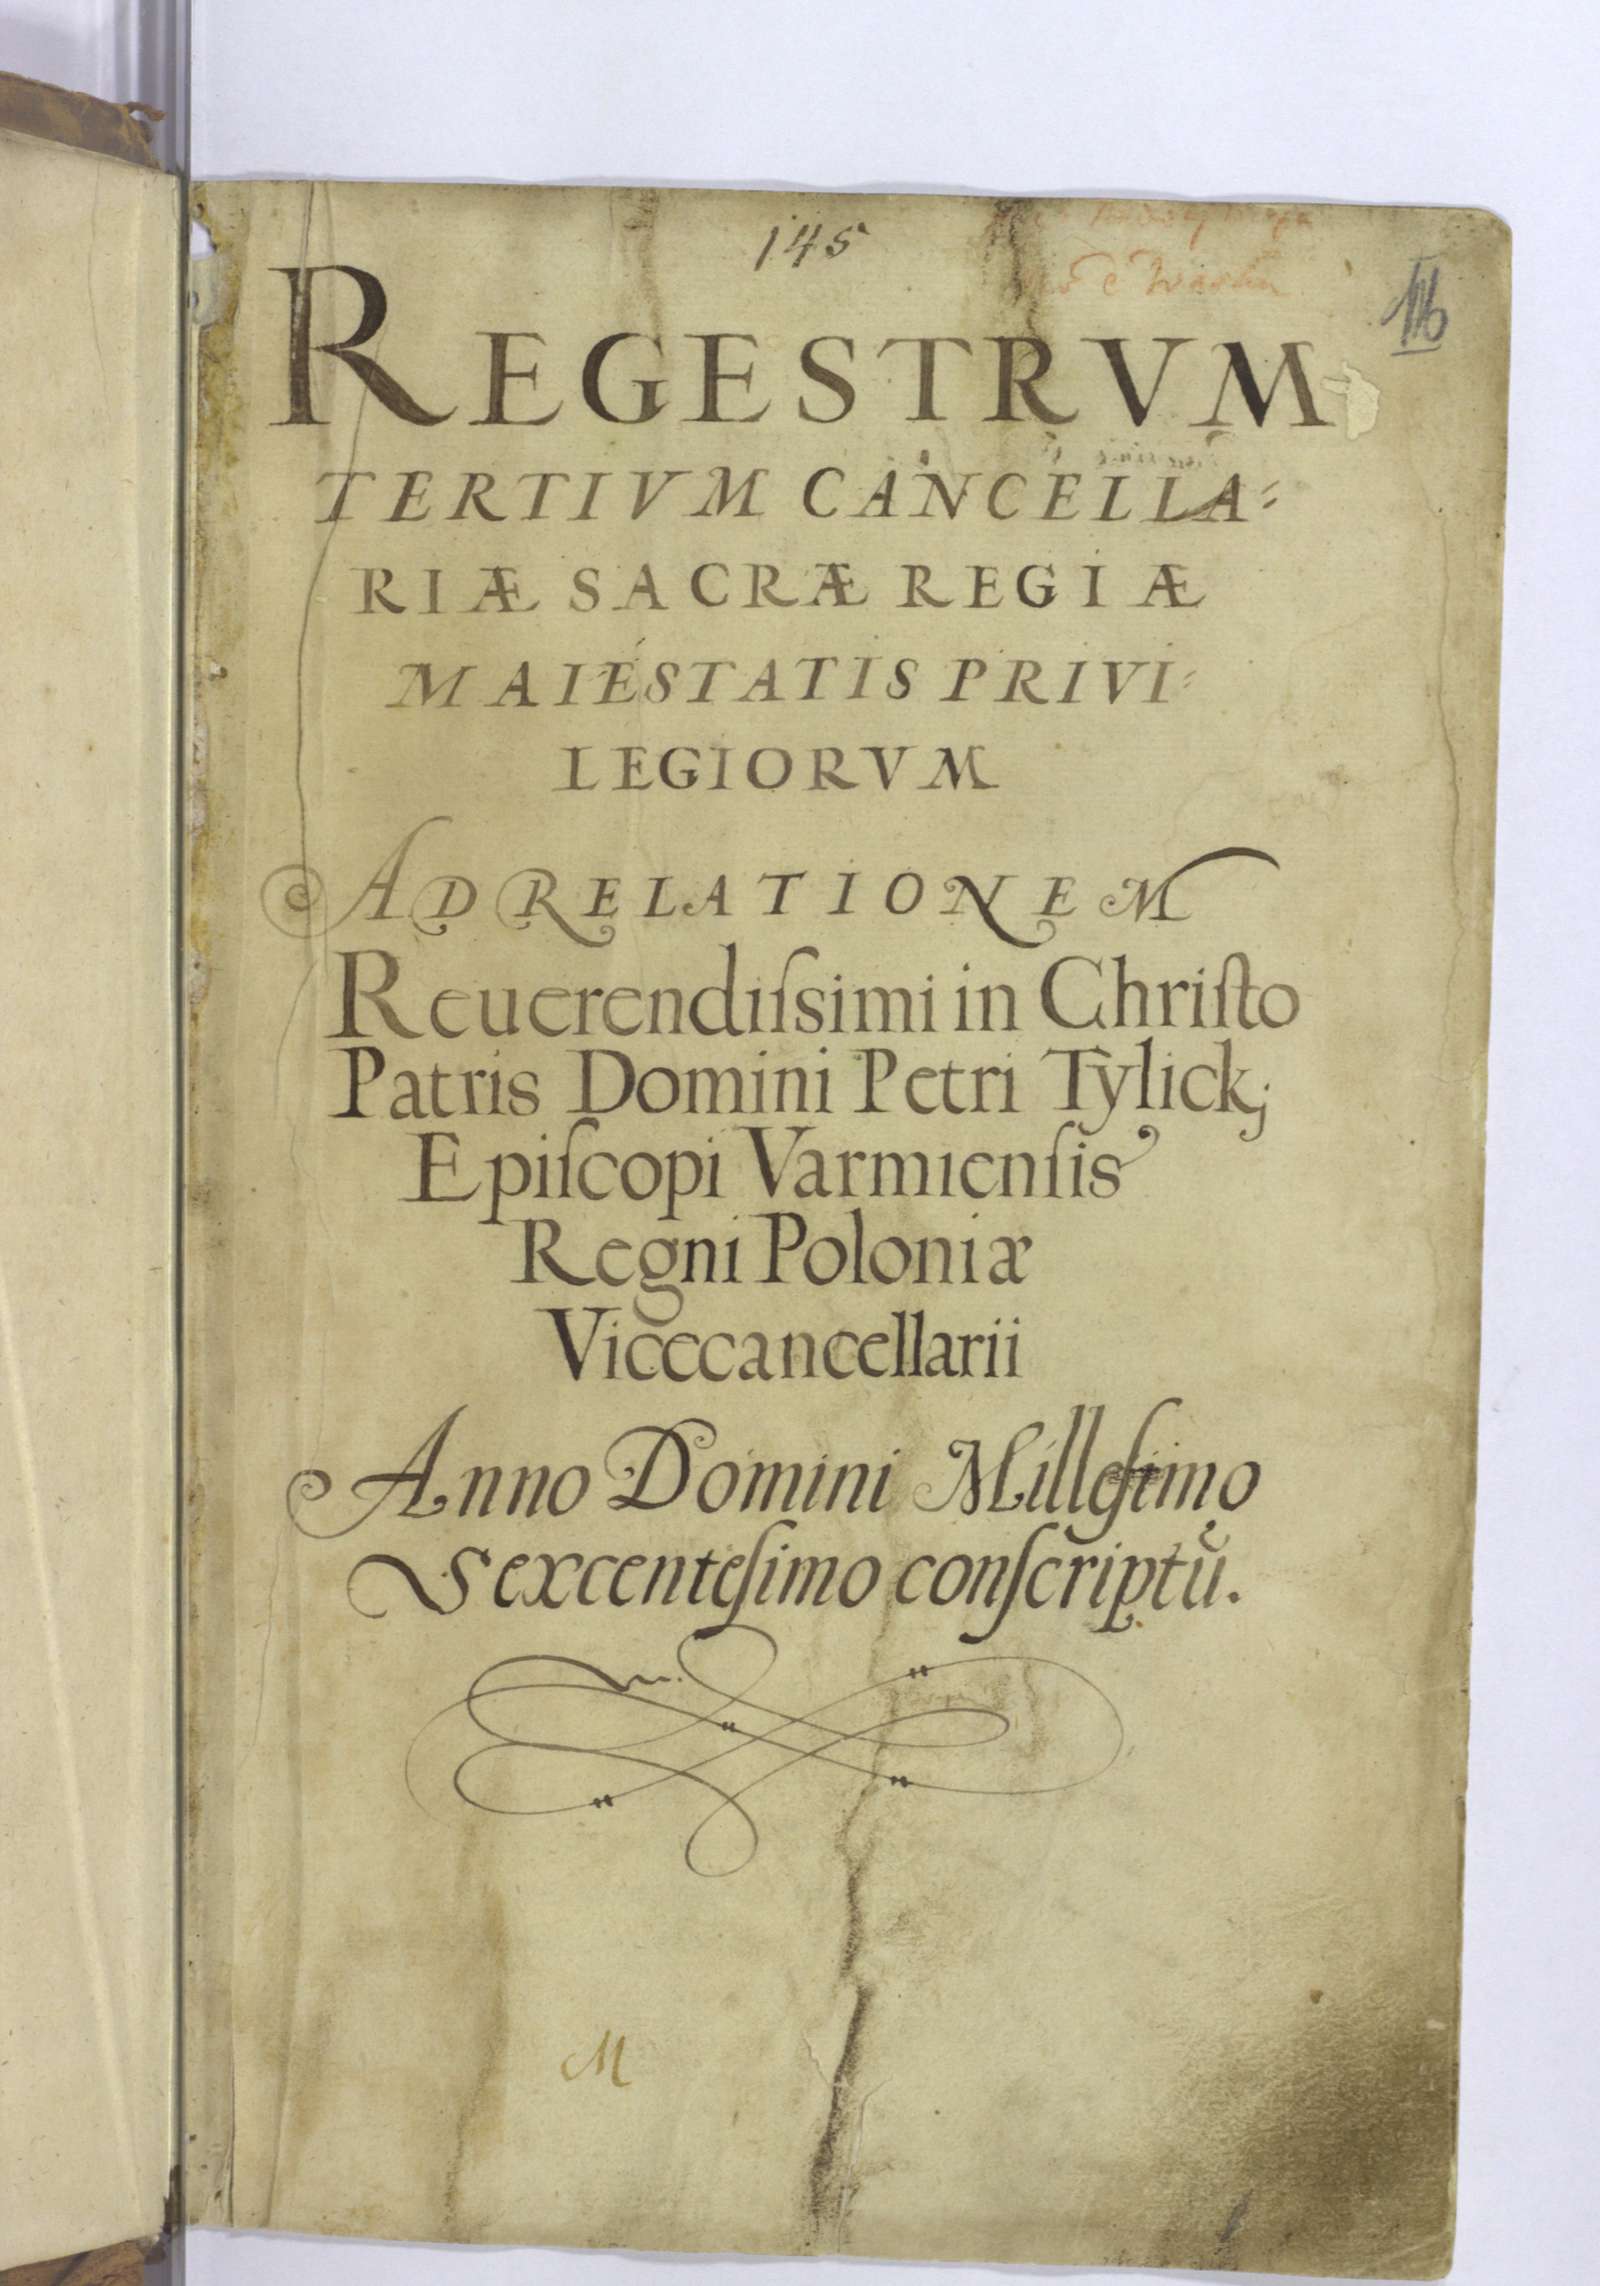 145
REGESTRVM
TERTIVM CANCELLA⸗
RIÆ SACRÆ REGIÆ
MAIESTATIS PRIVI⸗
LEGIORVM
AD RELATIONEM
Reuerendiſsimi in Chriſto
Patris Domini Petri Tÿlickj
Epiſcopi Varmienſis
Regni Poloniæ
Vicecancellarii
Anno Domini Milleſimo
Sexcenteſimo conſcriptū.
M